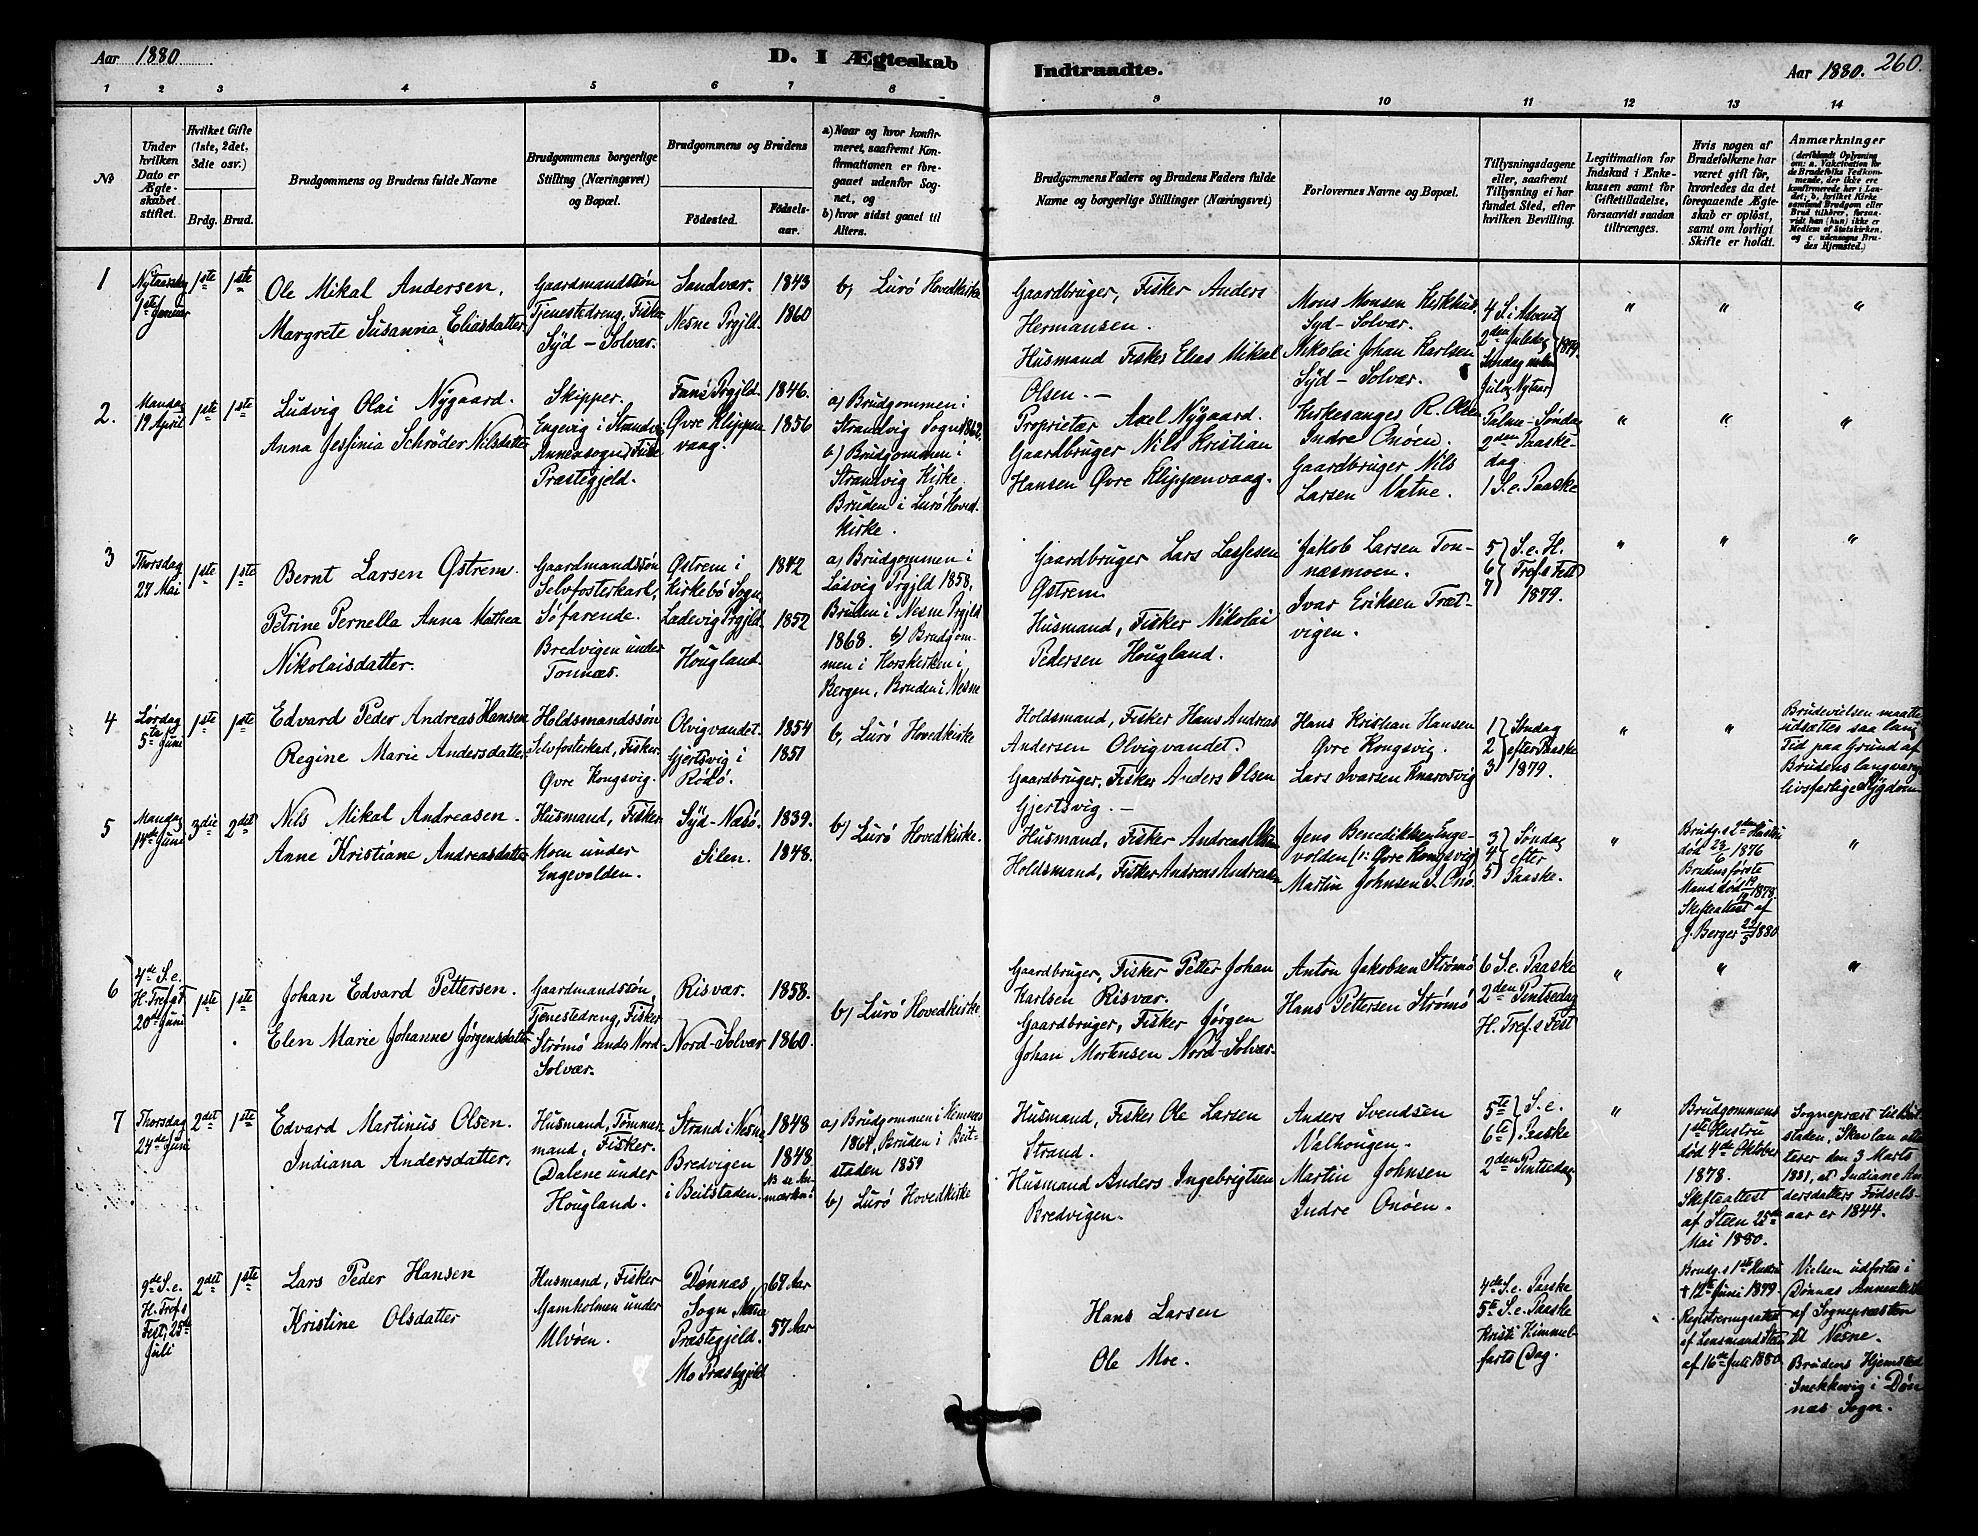 Aar 1880
D. I Ægteskab
Indtraadte.
Aar 1880.
260.
1 2 3 4 5 6 7 8 9 10 11 12 13 14
No
Under
hvilken
Dato er
Ægte-
skabet
stiftet.
Hvilket Gifte
(1ste, 2det,
3die osv.)
Brdg. Brud.
Brudgommens og Brudens fulde Navne
Brudgommens borgerlige
Stilling (Næringsvei)
og Bopæl.
Brudgommens og Brudens
Fødested.
Fødsels-
aar.
a) Naar og hvor konfir-
meret, saafremt Kon-
firmationen er fore-
gaaet udenfor Sog-
net, og
b) hvor sidst gaaet til
Alters.
Brudgommens Faders og Brudens Faders fulde
Navne og borgerlige Stillinger (Næringsvei)
Forlovernes Navne og Bopæl.
Tillysningsdagene
eller, saafremt
Tillysning ei har
fundet Sted, efter
hvilken Bevilling.
Legitimation for
Indskud i Enke-
kassen samt for
Giftetilladelse,
forsaavidt saadan
tiltrænges.
Hvis nogen af
Brudefolkene har
været gift før,
hvorledes da det
foregaaende Ægte-
skab er opløst,
samt om lovligt
Skifte er holdt.
Anmærkninger
(deriblandt Oplysning
om: a. Vakcination for
de Brudefolks Vedkom-
mende, der ikke ere
konfirmerede her i Lan-
det; b, hvilket Kirke
samfund Brudgom eller
Brud tilhører, forsaa-
vidt han (hun) ikke er
Medlem af Statskirken,
og c. udensogns Bru-
des Hjemsted.)
1
Nytaarsdag
1ste Januar
1ste 1ste
Ole Mikal Andersen.
Margrete Susanna Eliasdatter
Gaardmandssøn
Tjenestedreng, Fisker
Syd-Solvær.
Sandvær.
Nesne Prgjld.
1843
1860
b) Lurö Hovedkirke
Gaardbruger, Fisker Anders
Hermansen.
Husmand Fisker Elias Mikal
Olsen. —
Mons Monsen Kirkhus.
Syd-Solvær.
Nikolai Johan Karlsen
Syd-Solvær.
4 S. i Advent
2den Juledag
Søndag mellem
Jul og Nytaar
1879.
" " "
2.
Mandag
19 April
1ste 1ste
Ludvig Olai Nygaard.
Anna Jessinia Schröder Nilsdatter
Skipper.
Engevig i Strandvig
Annexsogn, Fuse
Præstegjeld.
Fans Prgjld.
Øvre Klippen
vaag.
1846.
1856
a) Brudgommen i
Strandvig Sogn 1862.
b) Brudgommen i
Strandvig Kirke.
Bruden i Lurö Hoved-
kirke.
Proprietær Axel Nygaard.
Gaardbruger Nils Kristian
Hansen Øvre Klippenvaag.
Kirkesanger R. Olsen
Indre Onöen.
Gaardbruger Nils
Larsen Vatne.
Palme-Søndag
2den Paaske-
dag.
1 S. e. Paaske
" " "
3
Thorsdag
27 Mai
1ste 1ste
Bernt Larsen Østrem.
Petrine Pernella Anna Mathea
Nikolaisdatter.
Gaardmandssøn
Selvfosterkarl,
Søfarende.
Bredvigen under
Tonnæs.
Østrem i
Kirkebö Sogn
Ladevig Prgjld.
Hougland.
1842
1852
a) Brudgommen i
Ladvig Prgjld 1858.
Bruden i Nesne Prgjld
1868. b) Brudgom-
men i Korskirken i
Bergen, Bruden i Nesne
Gaardbruger Lars Lassesen
Østrem.
Husmand, Fisker Nikolai
Pedersen Hougland.
Jakob Larsen Ton-
næsmoen.
Ivar Eriksen Træt-
vigen.
5 S. e. H.
6 Tref.s Fest
7 1879.
" " "
4
Lørdag
5te Juni
1ste 1ste
Edvard Peder Andreas Hansen
Regine Marie Andersdatter
Holdsmandssøn
Selvfosterkarl, Fisker
Øvre Kongsvig.
Olvigvandet.
Gjertsvig i
Rödö.
1854
1851
b, Lurö Hovedkirke
Holdsmand, Fisker Hans Andreas
Andersen Olvigvandet.
Gaardbruger, Fisker Anders Olsen
Gjertsvig. —
Hans Kristian Hansen
Øvre Kongsvig.
Lars Ivarsen Knarosvig
1 Søndag
2 efter Paaske
3 1879.
" "
Brudevielsen maatte
udsættes saa lang
Tid paa Grund af
Brudens langvarige
livsfarlige Sygdom
5
Mandag
14de Juni
3die 2det
Nils Mikal Andreasen.
Anne Kristiane Andreasdatter
Husmand, Fisker
Moen under
Engevolden.
Syd-Næsö.
Silen.
1839.
1848.
b) Lurö Hovedkirke.
Husmand, Fisker Andreas Olsen
Holdsmand, Fisker Andreas Andreasen
Jens Benediktsen Enge-
volden (ɔ: Øvre Kongsvig)
Martin Johnsen I. Onö.
3 Søndag
4 efter
5 Paaske.
"
Brudg.s 2den Hustru
död 23/6 1876
Brudens første
Mand död 19/12 1878.
Skifteattest af
J. Berger 22/5 1880
"
6
4de S. e.
H. Tref.s F.
20de Juni
1ste 1ste
Johan Edvard Pettersen.
Elen Marie Johanne Jørgensdatter
Gaardmandssøn
Tjenestedreng, Fisker
Strømö under Nord-
Solvær.
Risvær.
Nord-Solvær
1858.
1860.
b) Lurö Hovedkirke.
Gaardbruger, Fisker Petter Johan
Karlsen Risvær.
Gaardbruger, Fisker Jørgen
Johan Mortensen Nord-Solvær.
Anton Jakobsen Strømö
Hans Pettersen Strømö
6 S. e. Paaske
2den Pintsedag
H. Tref.s Fest
" " "
7
Thorsdag
24de Juni
2det 1ste
Edvard Martinus Olsen.
Indiana Andersdatter.
Husmand, Tømmer-
mand, Fisker.
Dalene under
Hougland.
Strand i Nesne
Bredvigen
i Beitstaden.
1848
1848
N se An-
mærkn:
a) Brudgommen i Hemnæs
1864, Bruden i Beit-
staden 1859
b) Lurö Hovedkirke
Husmand, Fisker Ole Larsen
Strand.
Husmand Anders Ingebrigtsen
Bredvigen.
Anders Svendsen
Valhougen.
Martin Johnsen
Indre Onöen.
5te S. e.
6te Paaske
2den Pintsedag
"
Brudgommens
1ste Hustru
död 4de Oktober
1878.
Skifteattest
af Steen 25de
Mai 1880.
Sognepræst til Beit-
staden, Skavlan att-
terer den 3 Marts
1881, at Indiane An-
dersdatters Fødsels-
aar er 1844.
9de S. e.
H. Tref.s
Fest, 25de
Juli
2det 1ste
Lars Peder Hansen
Kristine Olsdatter
Husmand, Fisker
Gamholmen under
Ulvöen.
Dönnæs
Sogn Nesne
Præstegjeld.
Mo Præstegjeld
67 Aar
57 Aar
Hans Larsen
Ole Moe.
4de S. e. Paaske
5te S. e. Paaske
Kristi Himmel-
farts Dag.
Brudg.s 1ste Hustru
† 12te Juni 1879
Registreringsattest
af Lensmand Steen
af 16de Juli 1880
Vielsen udfortes i
Dönnæs Annexkirke
af Sognepræsten
til Nesne.
Brudens Hjemsted
Snekkevig i Dön-
næs Sogn.